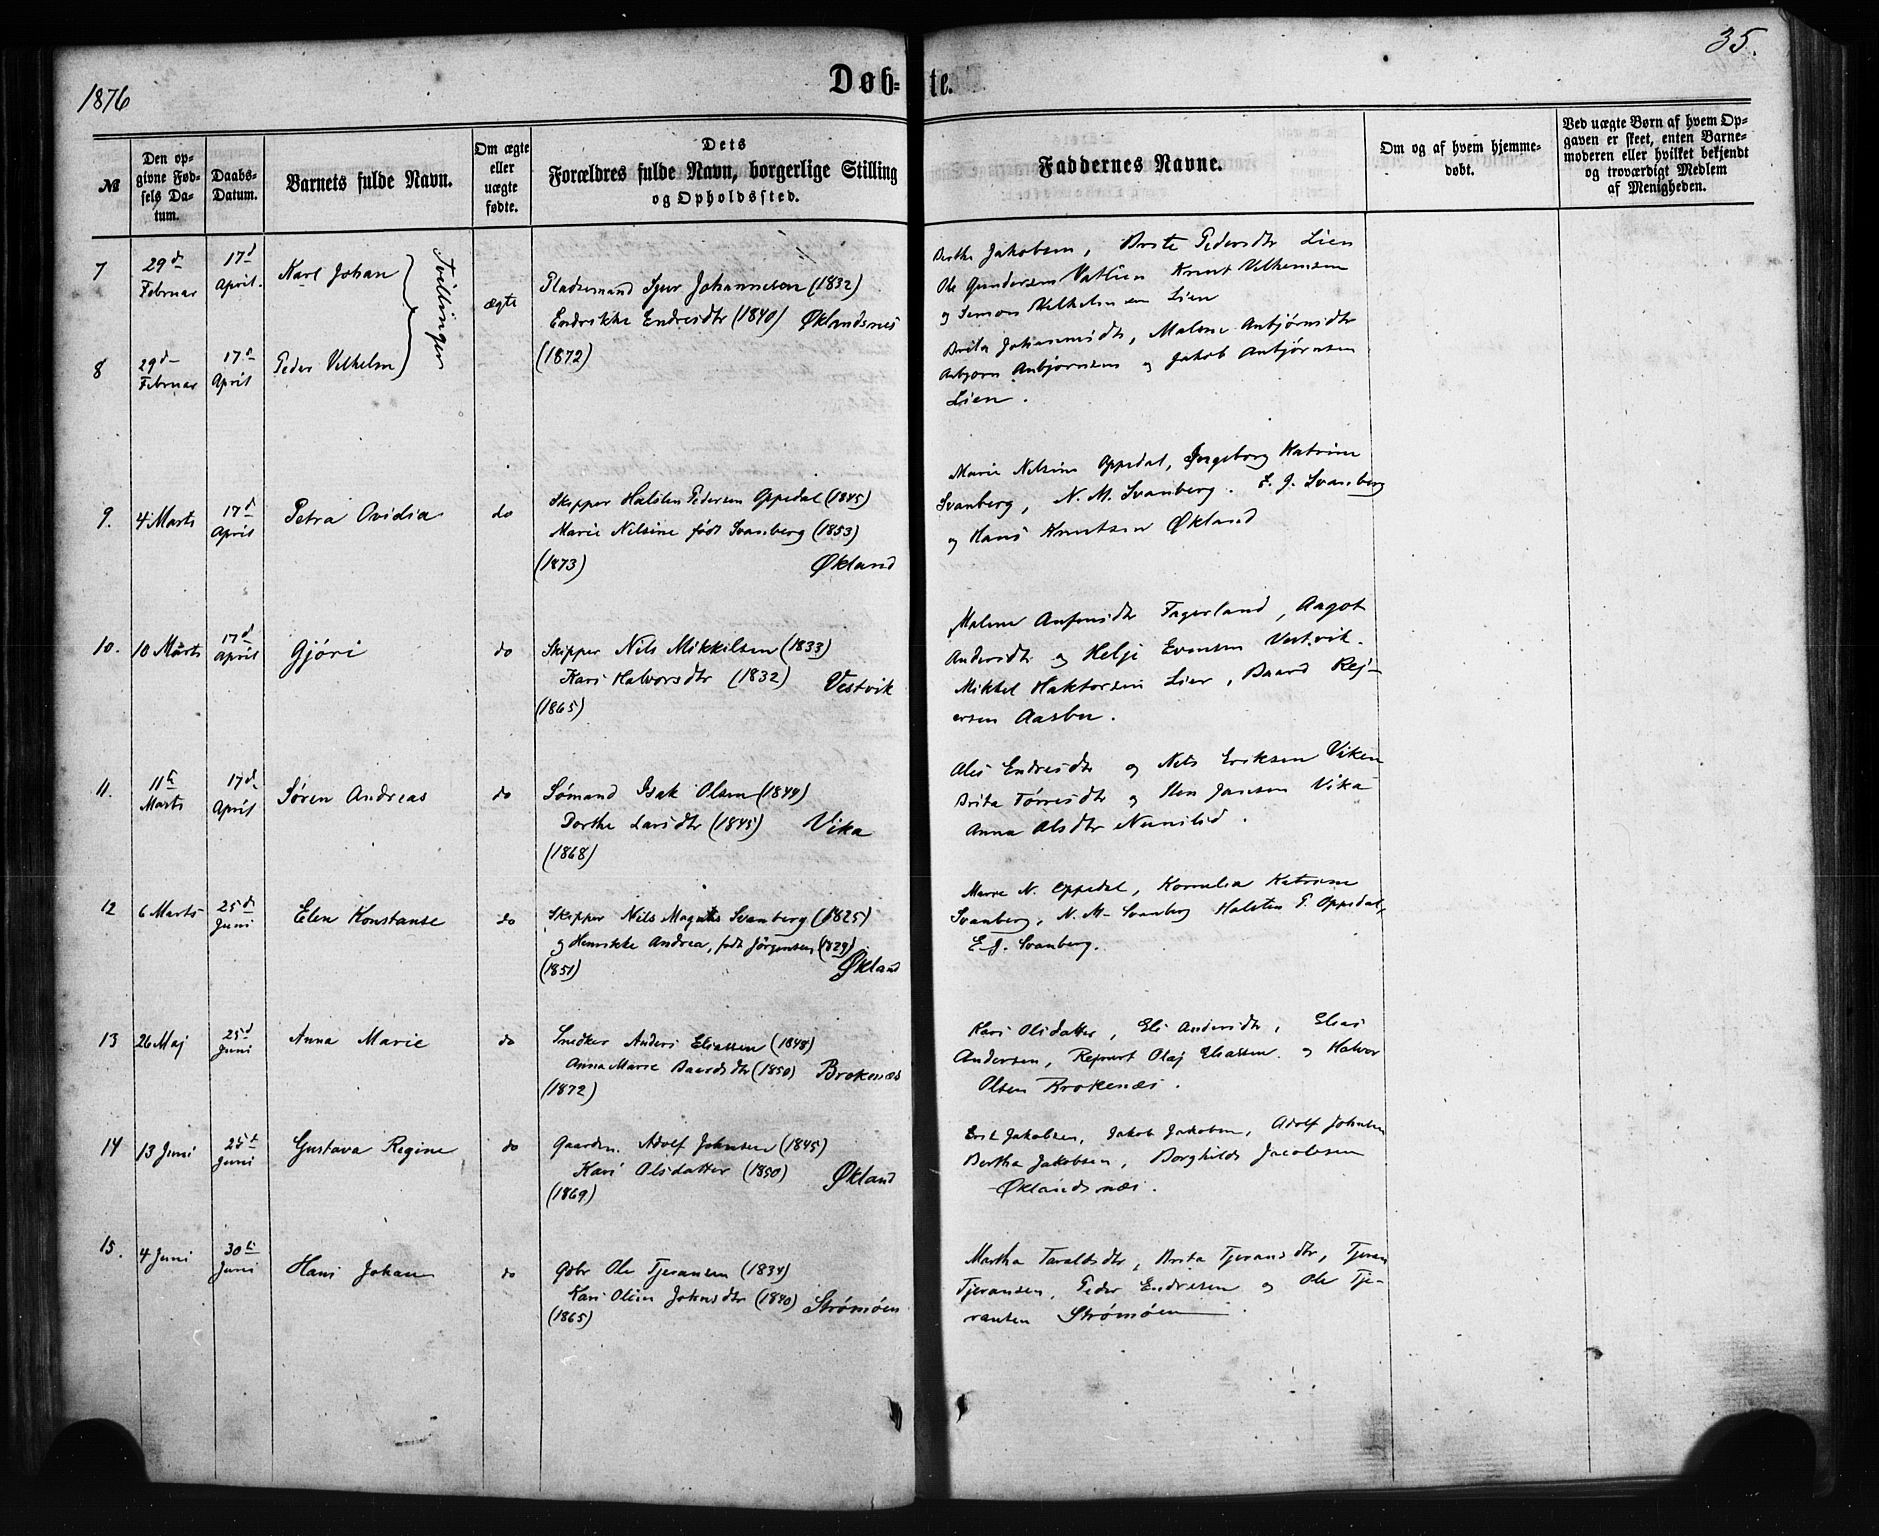 1876
Døb-
te.
35.
№
Den op-
givne Fød-
sels Da-
tum.
Daabs-
Datum.
Barnets fulde Navn.
Om ægte
eller
uægte
fødte.
Dets
Forældres fulde Navn, borgerlige Stilling
og Opholdssted.
Faddernes Navne.
Om og af hvem hjemme-
døbt.
Ved uægte Børn af hvem Op-
gaven er skeet, enten Barne-
moderen eller hvilket bekjendt
og troværdigt Medlem
af Menigheden.
7
29d
Februar
17d
April.
Karl Johan
Tvillinger
ægte
Pladsemand Sjur Johannesen (1832)
Endrikke Endresdtr (1840) Øklandsnes
(1872)
Berthe Jakobsen, Brite Pedersdtr Lien
Ole Gundersen Vatlien Knut Vilhelmsen
og Simon Vilhelmsen Lien
8
29d
Februar
17d
April
Peder Vilhelm
Brita Johannesdtr, Malene Anbjørnsdtr
Anbjørn Anbjørnsen og Jakob Anbjørnsen
Lien.
9.
4 Marts
17d
April
Petra Ovidia
do
Skipper Halsten Pedersen Oppedal (1845)
Marie Nilsine født Svanberg (1853)
(1873) Økland
Marie Nilsine Oppedal, Ingeborg Katrine
Svanberg, N. M. Svanberg. E. J. Svanberg
og Hans Knutsen Økland
10.
10 Marts
17d
April
Gjøri
do
Skipper Nils Mikkelsen (1833)
Kari Halvorsdtr (1832) Vestvik
(1865)
Malene Fagerland, Aagot
Andersdtr og Helje Evensen Vestvik.
Mikkel Haktorsen Lier, Baard Rej-
ersen Aasbu.
11.
11te
Marts
17d
April
Søren Andreas
do
Sømand Isak Olsen (1844)
Dorthe Larsdtr (1845) Vika
(1868)
Ales Endresdtr og Nils Eriksen Viken
Brita Tørresdtr og Sten Jansen Vika
Anna Olsdtr
12
6 Marts
25d
Juni
Elen Konstanse
do
Skipper Nils Magnus Svanberg (1825)
og Henrikke Andrea, født Jørgensen (1829)
(1851) Økland
Marie N. Oppedal, Kornelia Katrine
Svanberg, N. M. Svanberg Halsten P. Oppedal,
E. J. Svanberg.
13
26 Maj
25d
Juni
Anna Marie
do
Snedker Anders Eliassen (1848)
Anna Marie Baardsdtr (1850) Brokenæs
(1872)
Kari Olsdatter, Eli Andersdtr, Elias
Andersen, Rejnert Olaj Eliassen og Halvor
Olsen Brokenæs.
14
13 Juni
25d
Juni
Gustava Regine
do
Gaardm. Adolf Johnsen (1845)
Kari Olsdatter (1850) Økland
(1869)
Erik Jakobsen, Jakob Jakobsen, Adolf Johnsen
Bertha Jakobsen, Borghilde Jacobsen
Øklandsnæs.
15.
4 Juni
30te
Juni
Hans Johan
do
Gbr Ole Tjeransen (1834)
Kari Olina Johnsdtr (1840) Strømøen
(1865)
Martha Taraldsdtr, Brita Tjeransdtr, Tjeran
Tjeransen, Peder Endresen og Ole Tje-
ransen Strømøen.